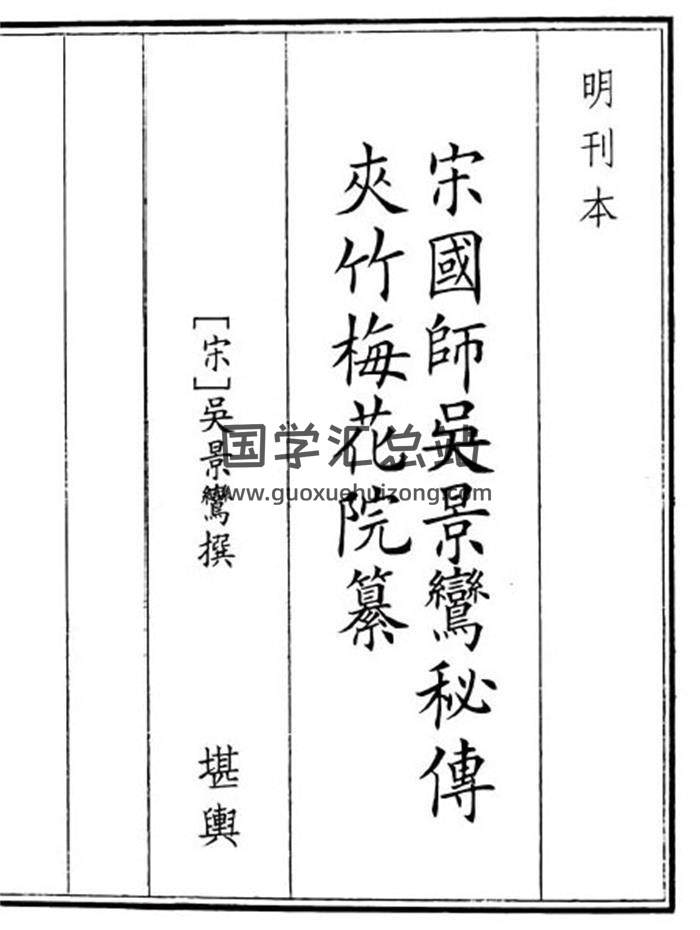 明刊本
宋國師吳景鸞秘傳
夾竹梅花院纂
[宋]吳景鸞撰
堪輿
国学汇总站
www.guoxuehuizong.com